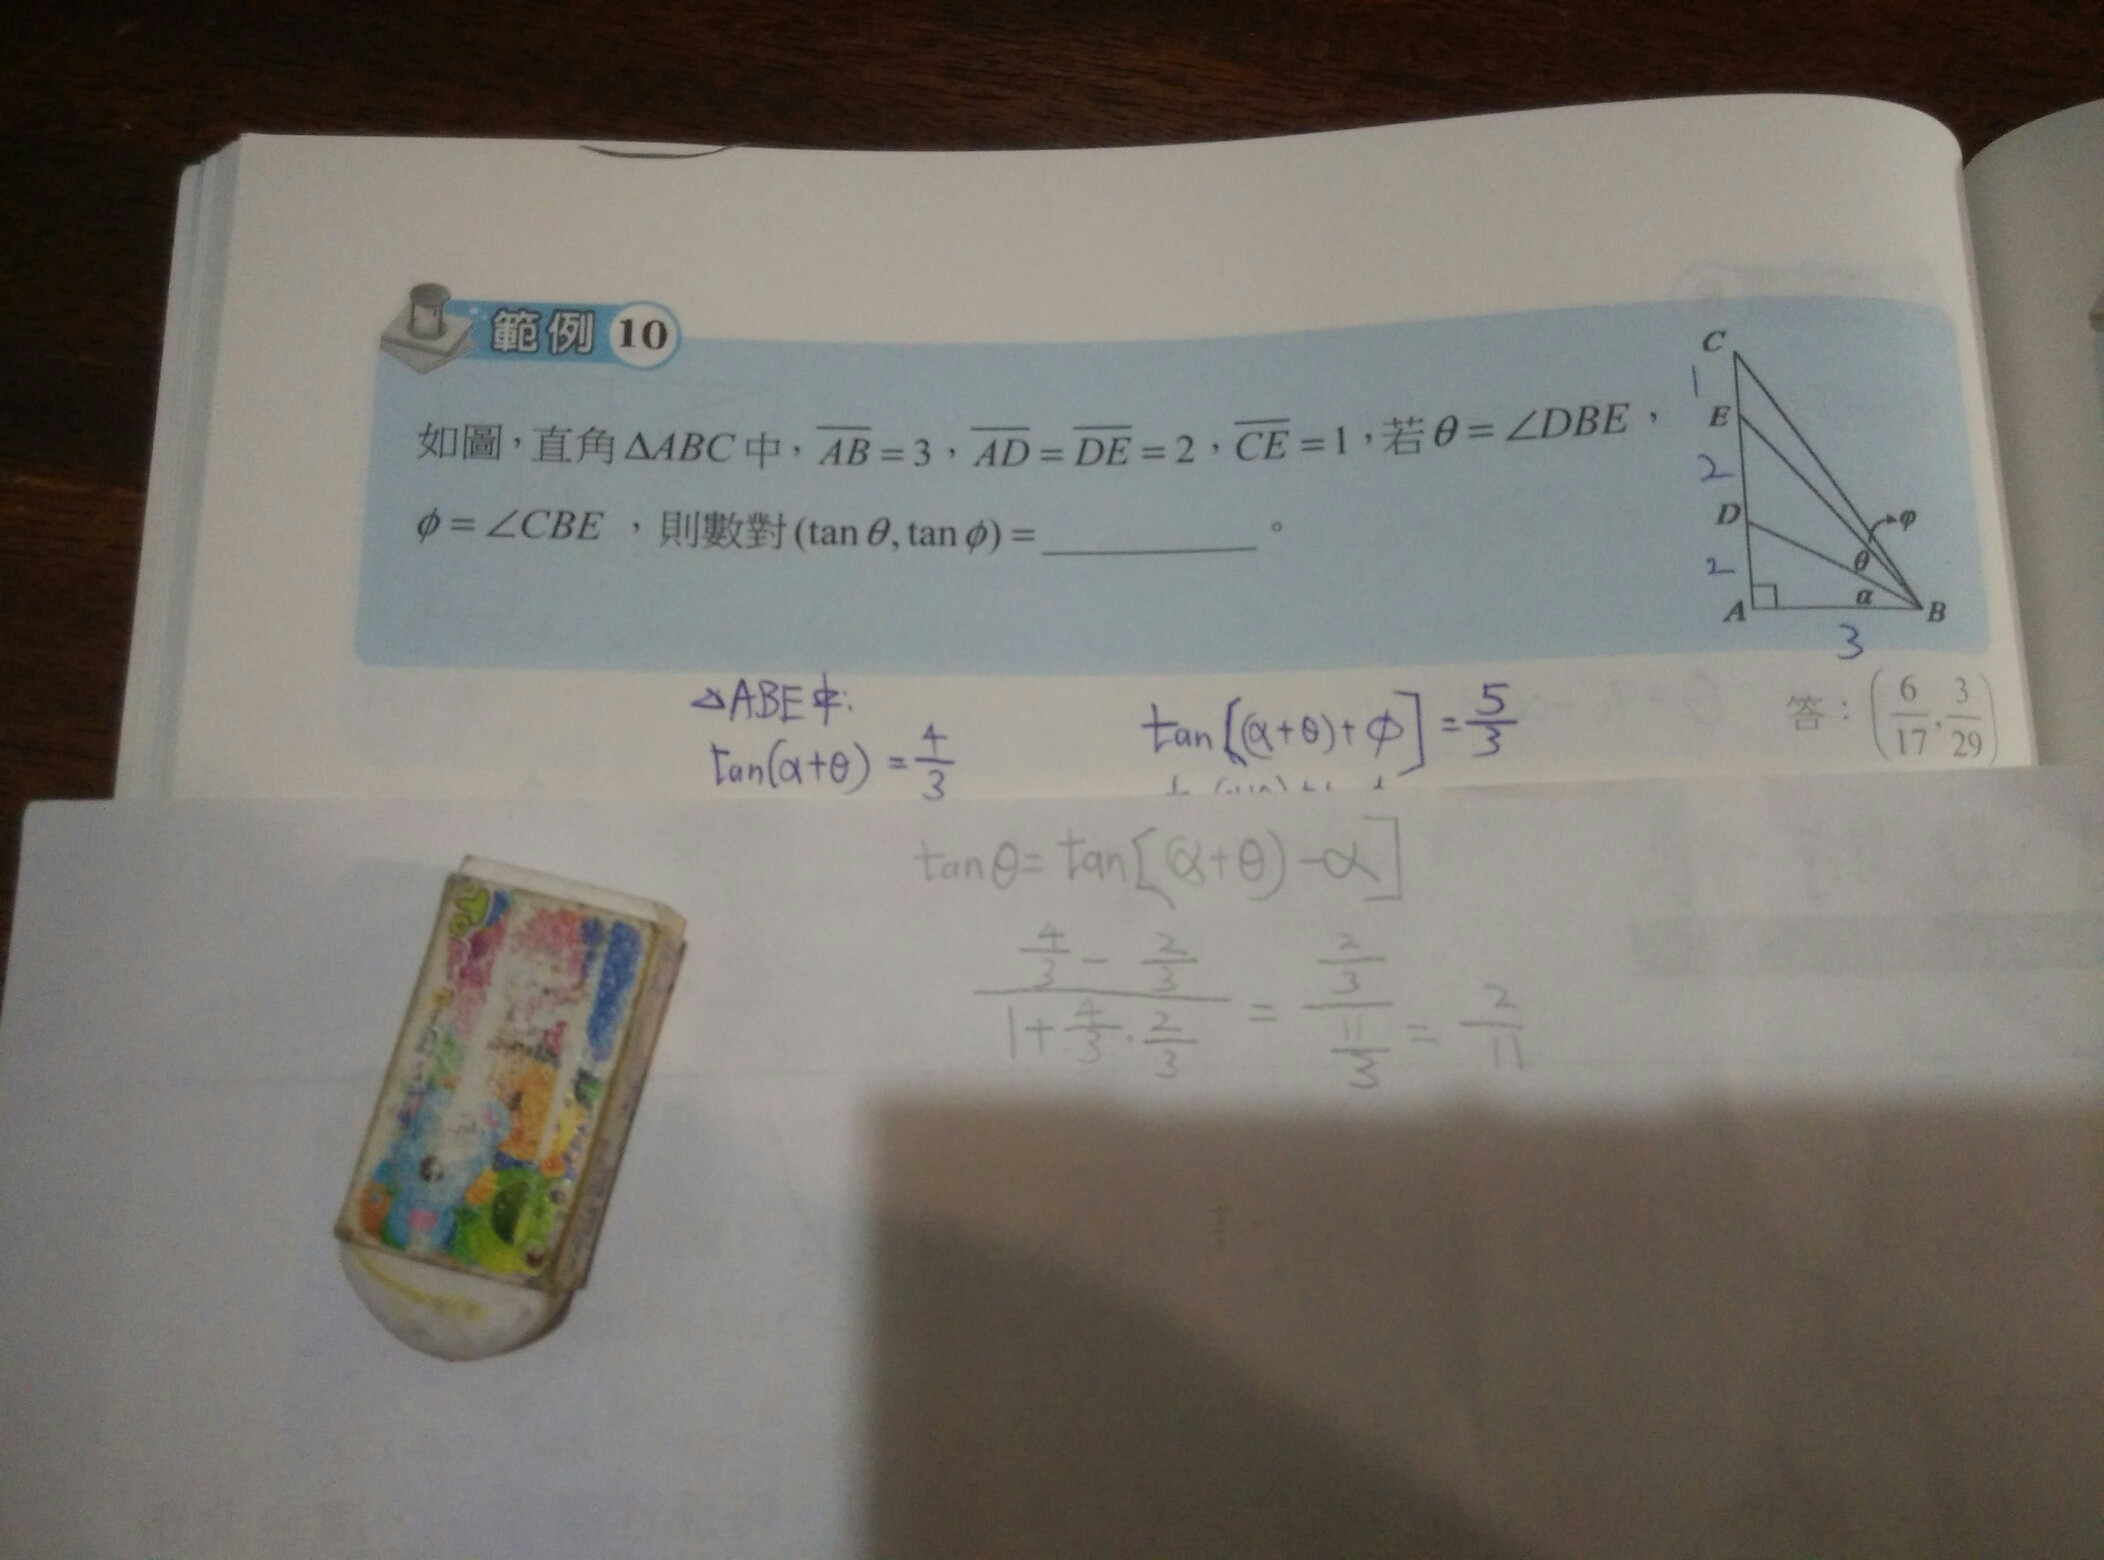 範例 10
如圖，直角ΔABC中，AB=3，AD=DE=2，CE=1，若θ=∠DBE，
φ=∠CBE，則數對(tanθ,tanφ)=__________。
C
1
E
2
D
φ
θ
2
α
A
B
3
△ABE中:
tan(α+θ)=4/3
tan[(α+θ)+φ]=5/3
答：(6/17,3/29)
tanθ=tan[(α+θ)-α]
(4/3-2/3)/(1+4/3·2/3)=(2/3)/(11/3)=2/11